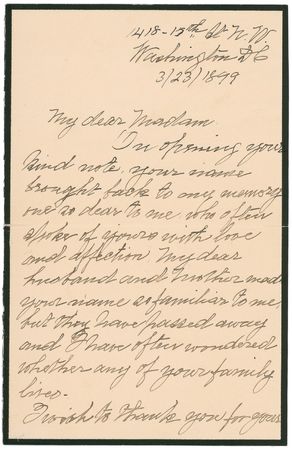 418-12th St N.W.
Washington DC
3/23/1899
My dear Madam
In opening your
kind note, your name
brought back to my memory
one so dear to me, who often
spoke of yours with love
and affection. My dear
husband and Mother made
your name so familiar to me,
but they have passed away
and I have often wondered
whether any of your family
lives.
I wish to thank you for yours